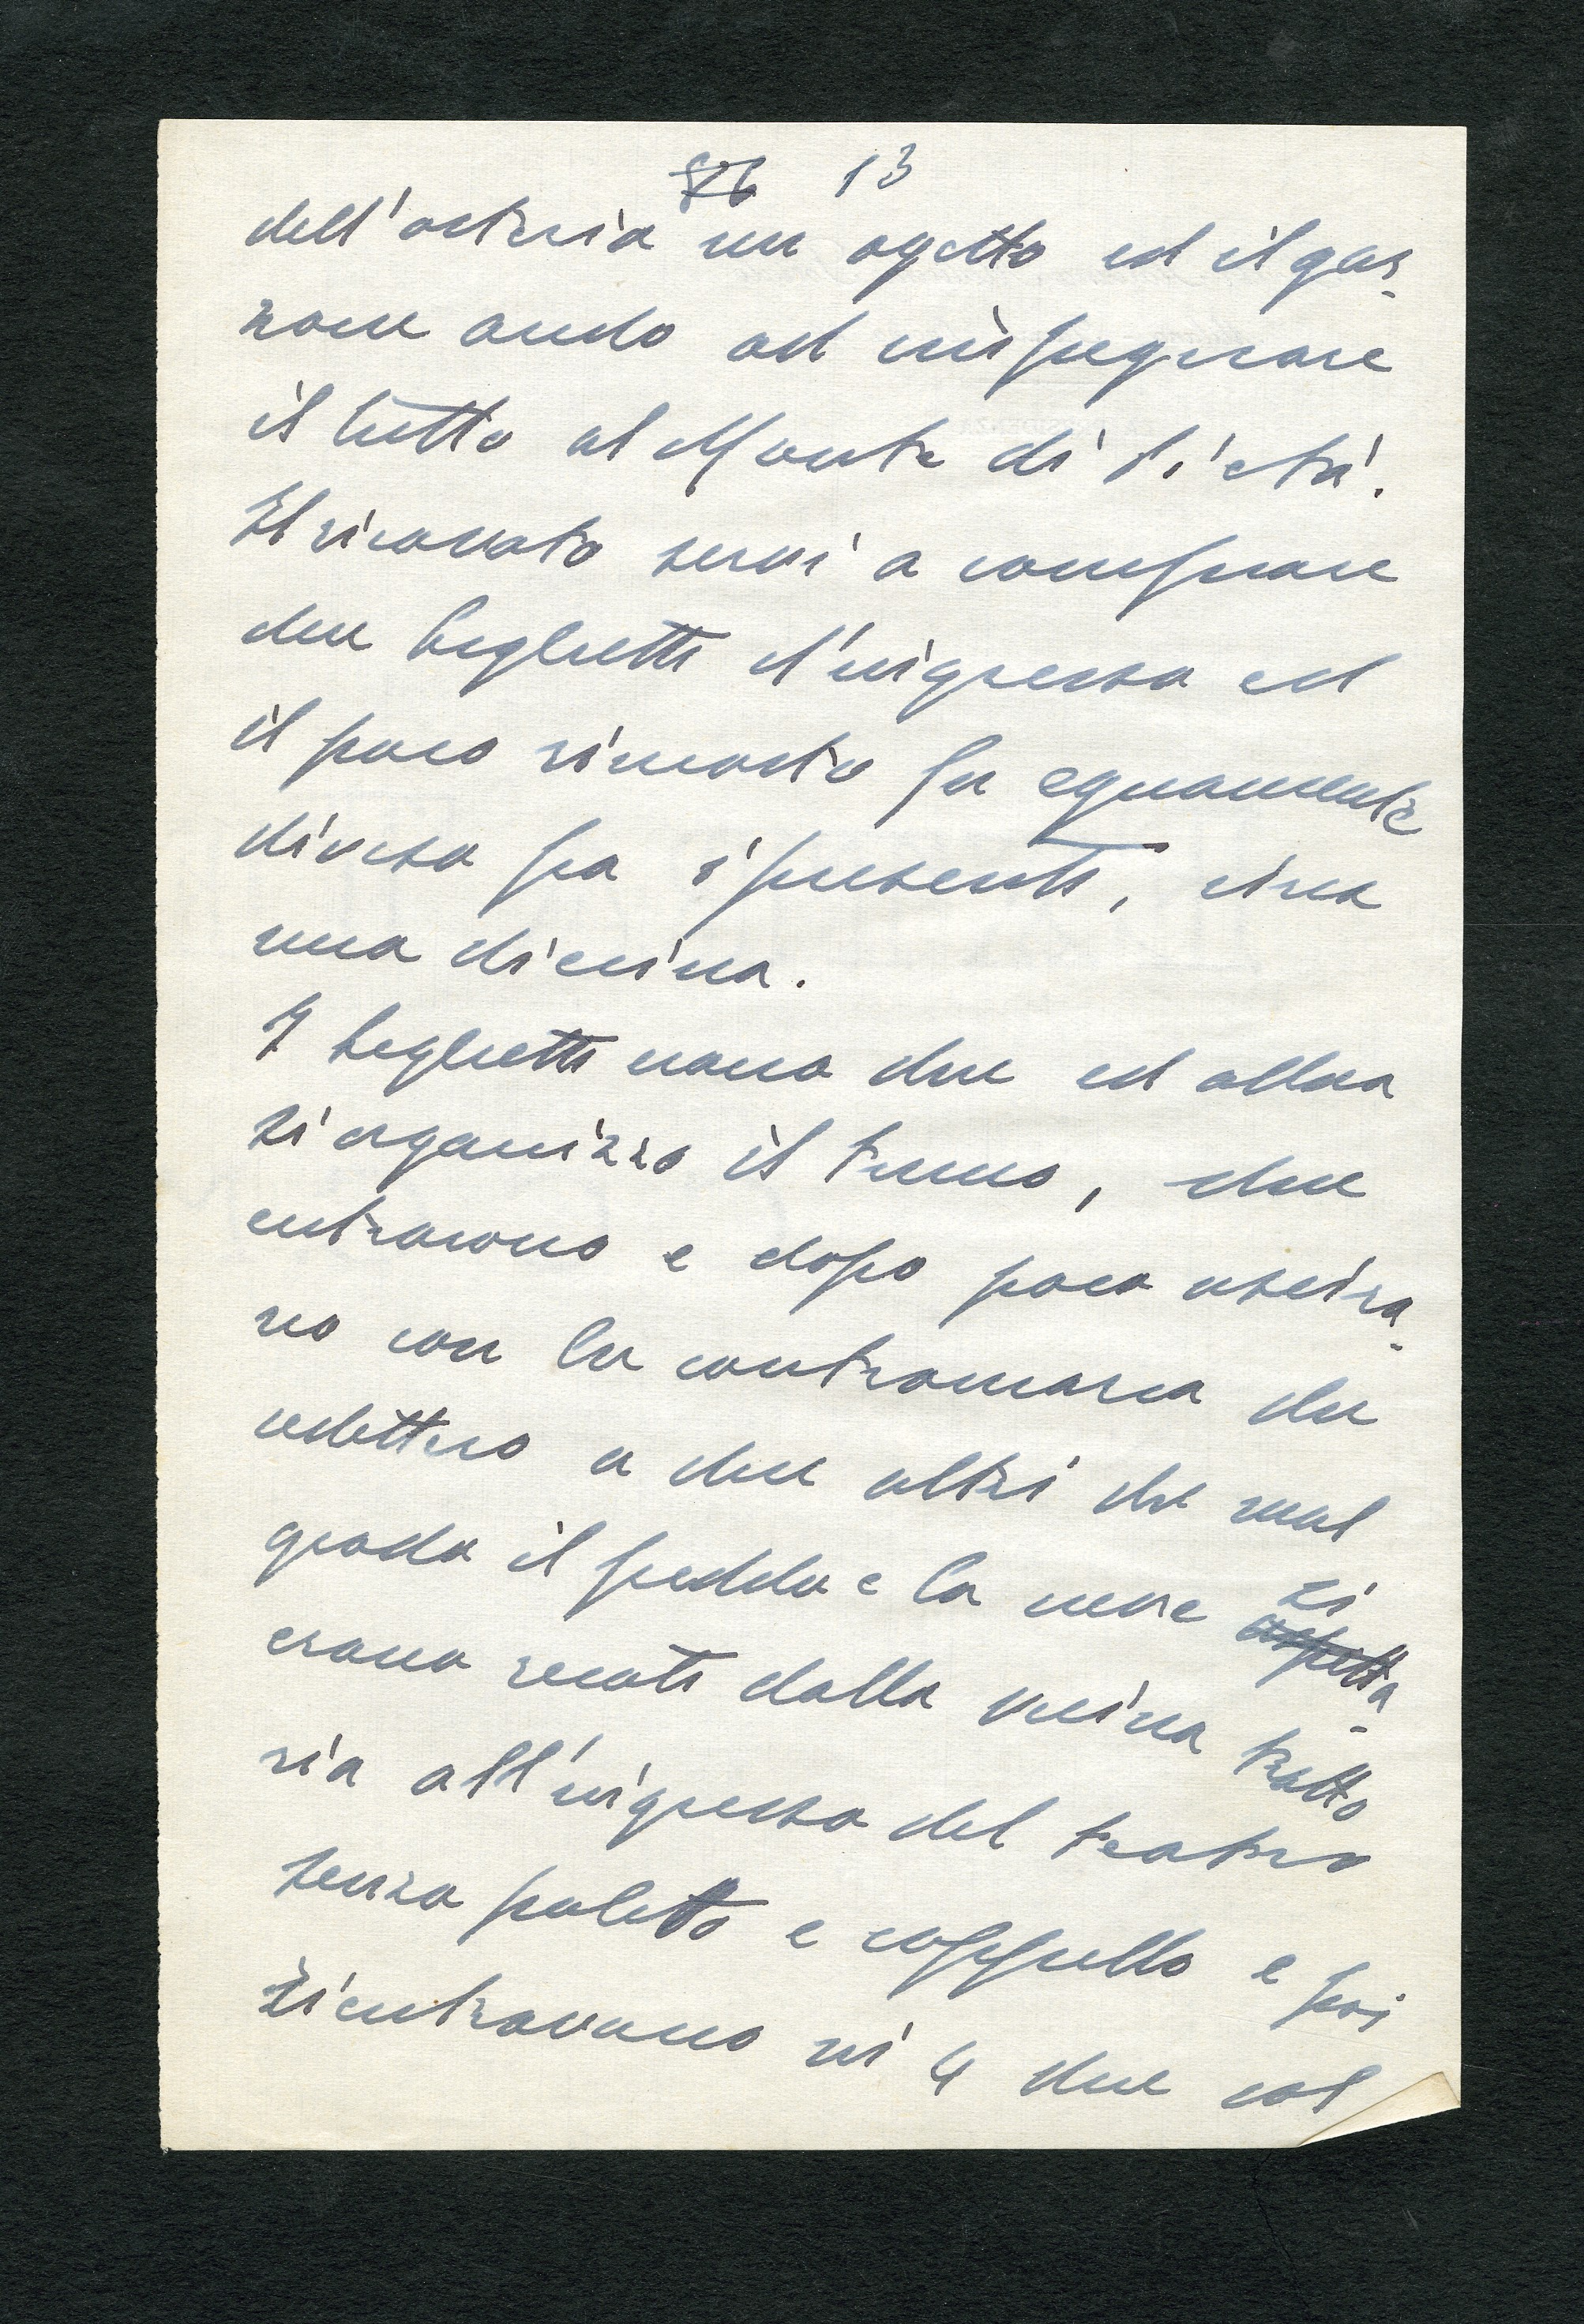 13
dell'osteria un ogetto ed il gar-
zone ando ad impegnare
il tutto al Monte di Pietá.
Il ricavato servi a comprare
due biglietti d'ingresso ed
il poco rimasto fu equamente
diviso fra i presenti, circa
una diecina.
I biglietti erano due ed allora
si organizzo il turno, due
entrarono e dopo poco uscira-
no con la contromarca che
cedettero a due altri che mal
grado il freddo e la neve si
erano recati dalla vicina tratto
ria all'ingresso del teatro
senza paletto e cappello e poi
rientravano in 4 due col